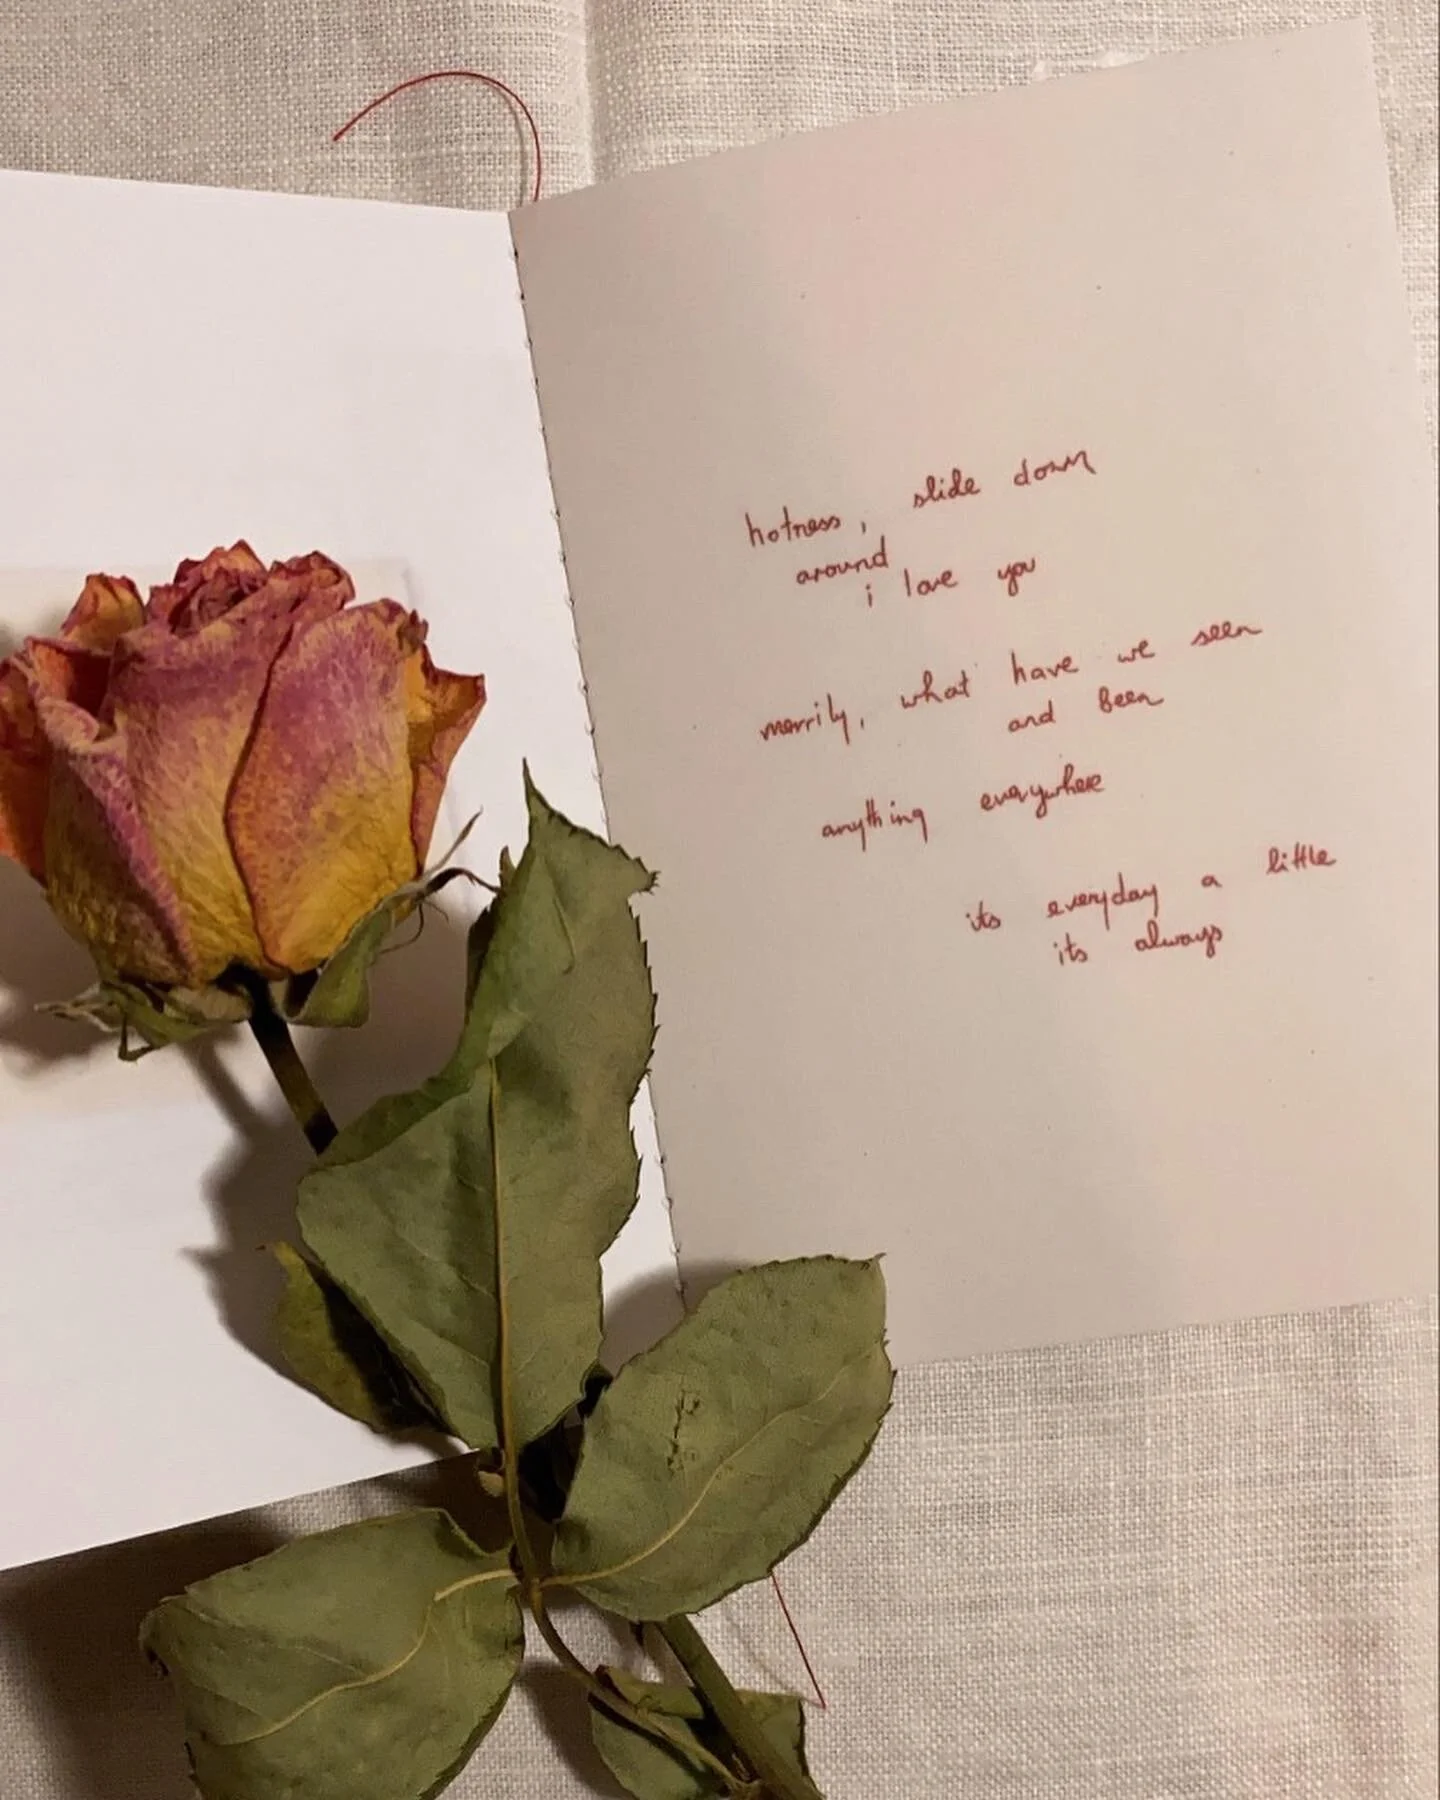 hotness, slide down
around
i love you
merrily, what have we seen
and been
anything everywhere
its everyday a little
its always